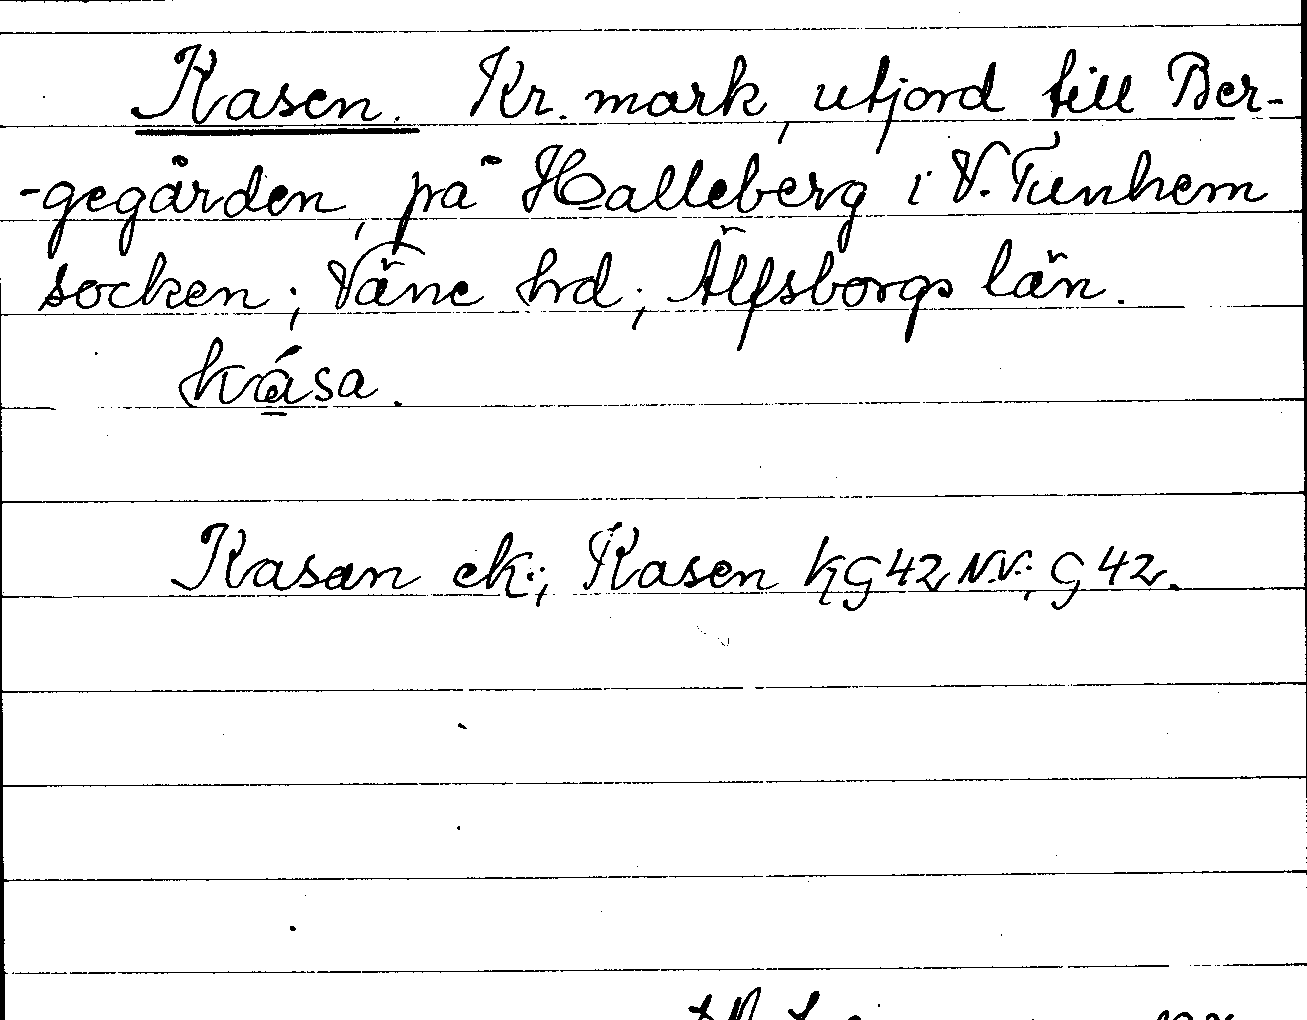 Kasen. Kr. mark, utjord till Ber-
-gegården, på Halleberg i V. Tunhem
socken; Väne hrd; Älfsborgs län.
kása.
Kasan ek.; Kasen KG42NV; G42.